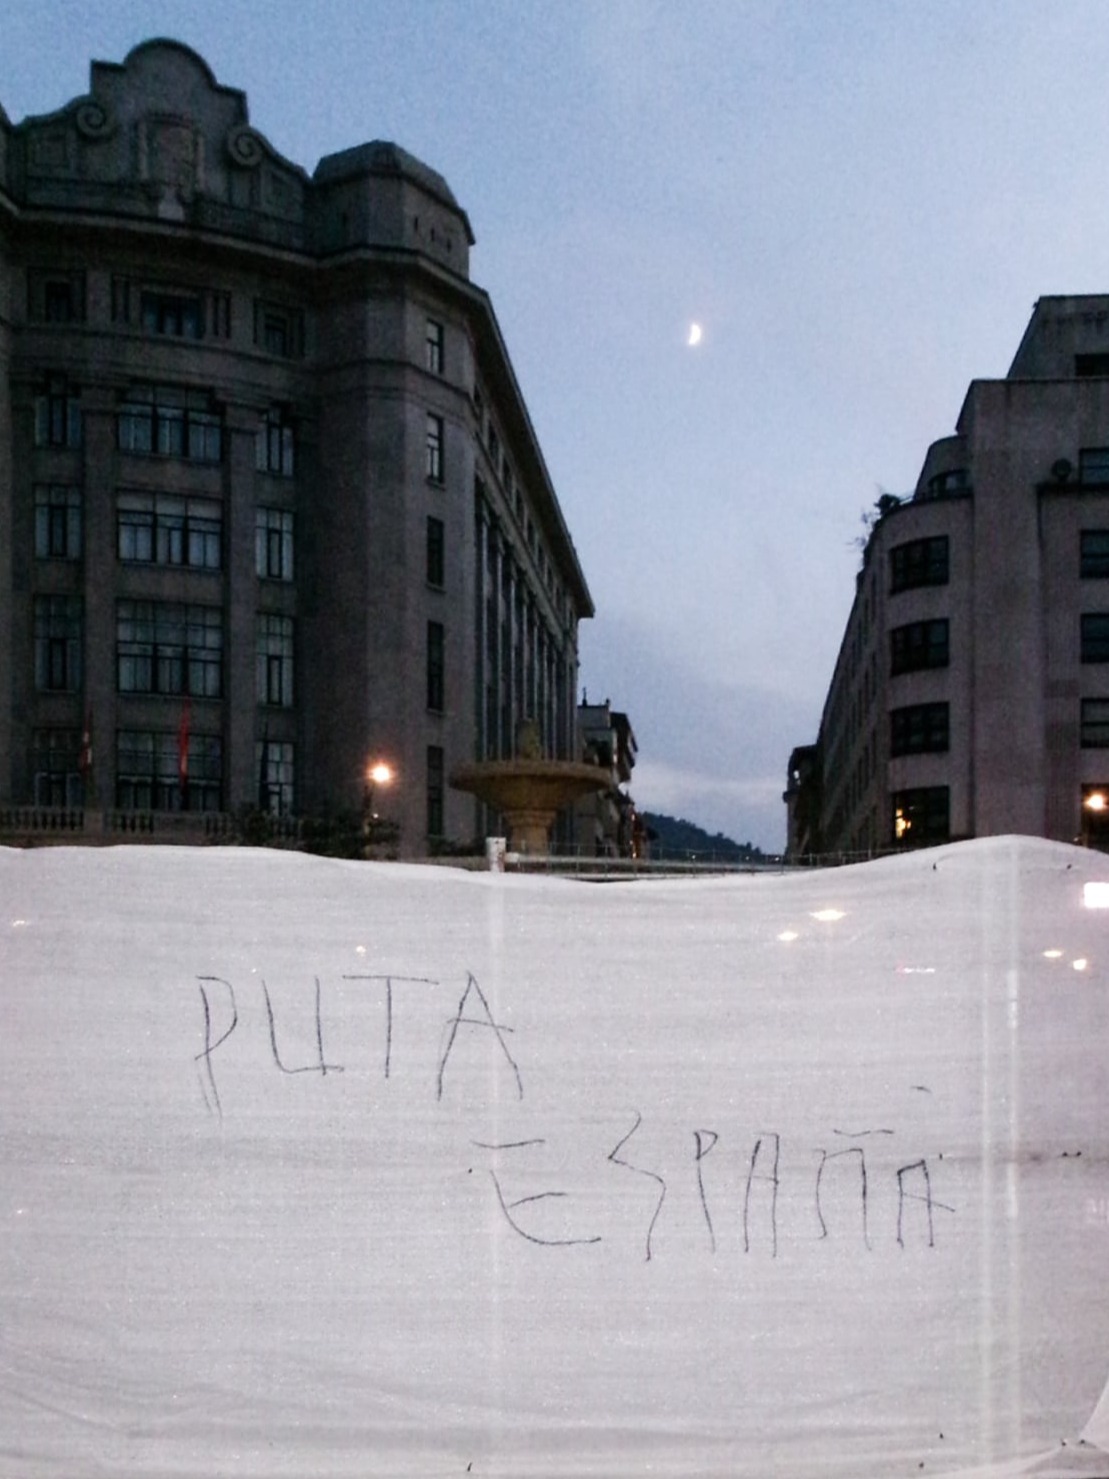 PUTA
ESPAÑA